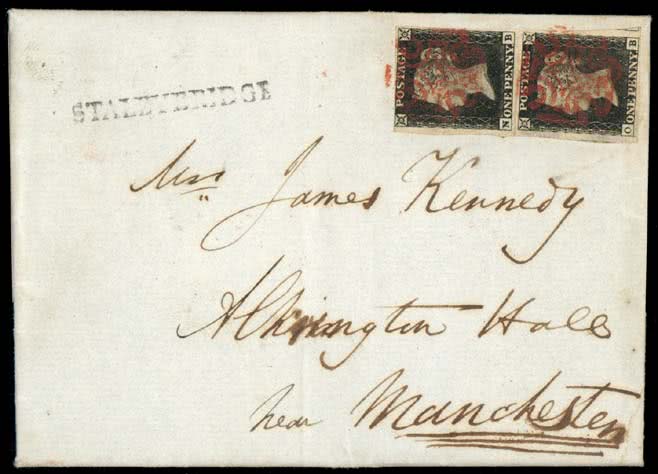 STALEYBRIDGE
POSTAGE
N ONE PENNY B
POSTAGE
O ONE PENNY B
Mrs James Kennedy
Alkrington Hall
near Manchester